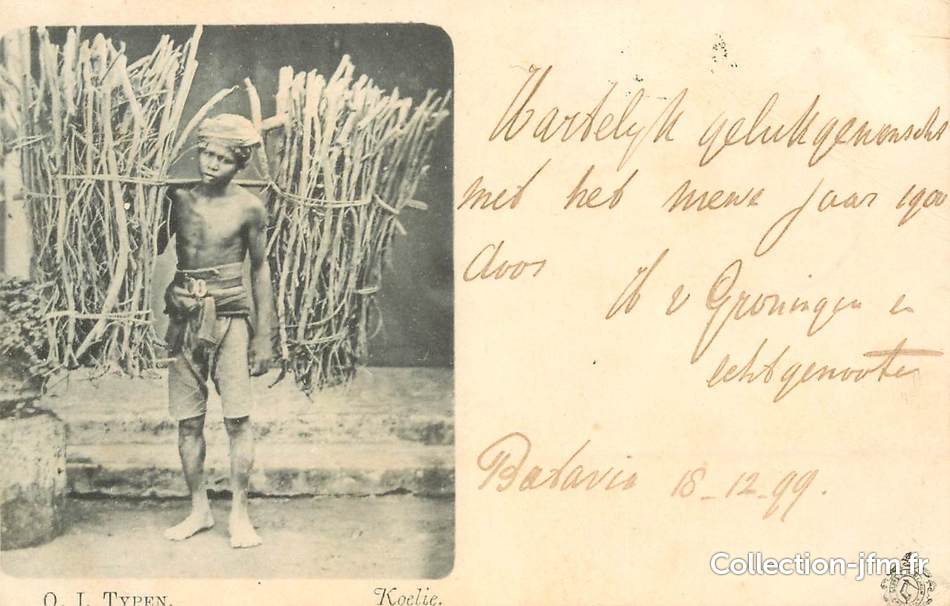 Hartelijk gelukgewenscht
met het nieuwe jaar 1900
door
H v Groningen en
echtgenoote
Batavia 18-12-99.
O. I. TYPEN.
Koelie.
Collection-jfm.fr